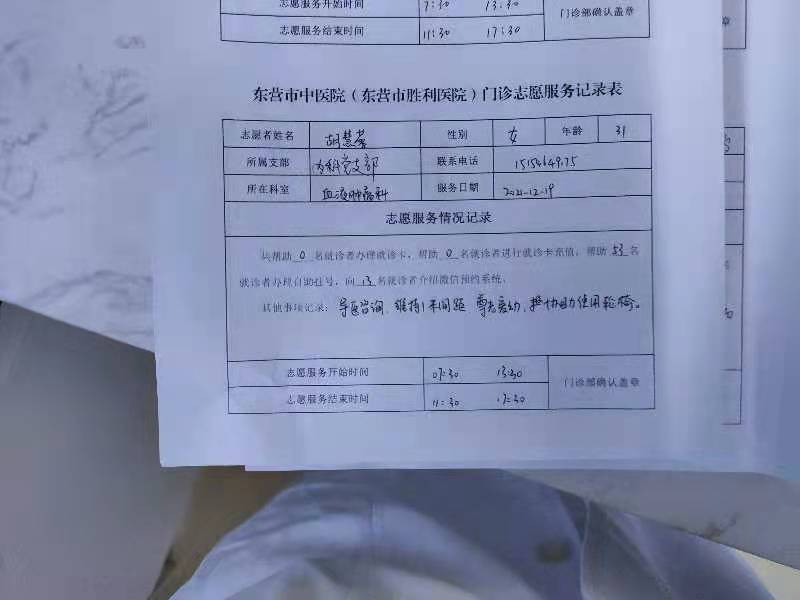 志愿服务开始时间 7:30 13:30
门诊部确认盖章
志愿服务结束时间 11:30 17:30
东营市中医院（东营市胜利医院）门诊志愿服务记录表
志愿者姓名 胡慧 性别 女 年龄 31
所属支部 内科党支部 联系电话
所在科室 血液肿瘤科 服务日期 2021-12-19
志愿服务情况记录
共帮助 0 名就诊者办理就诊卡，帮助 0 名就诊者进行就诊卡充值，帮助 53 名
就诊者办理自助挂号，向 13 名就诊者介绍微信预约系统。
其他事项记录：导医咨询，维持1米间距 尊老爱幼，协助使用轮椅。
志愿服务开始时间 07:30 13:30
门诊部确认盖章
志愿服务结束时间 11:30 17:30